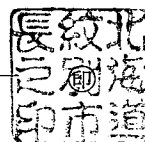 北海道
紋別市
長之印
印